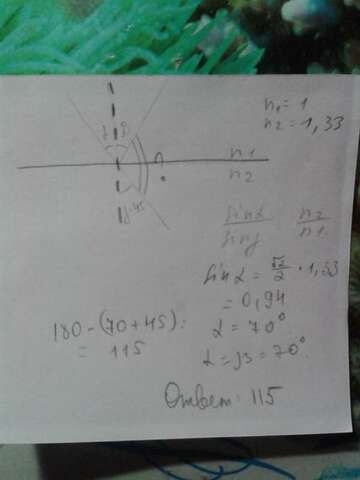 n₁ = 1
n₂ = 1,33
α β
?
n₁
n₂
γ 45
sinα / sinγ n₂ / n₁
sinα = √2/2 · 1,33
= 0,94
α = 70°
α = β = 70°.
180 - (70 + 45) :
= 115
Ответ: 115